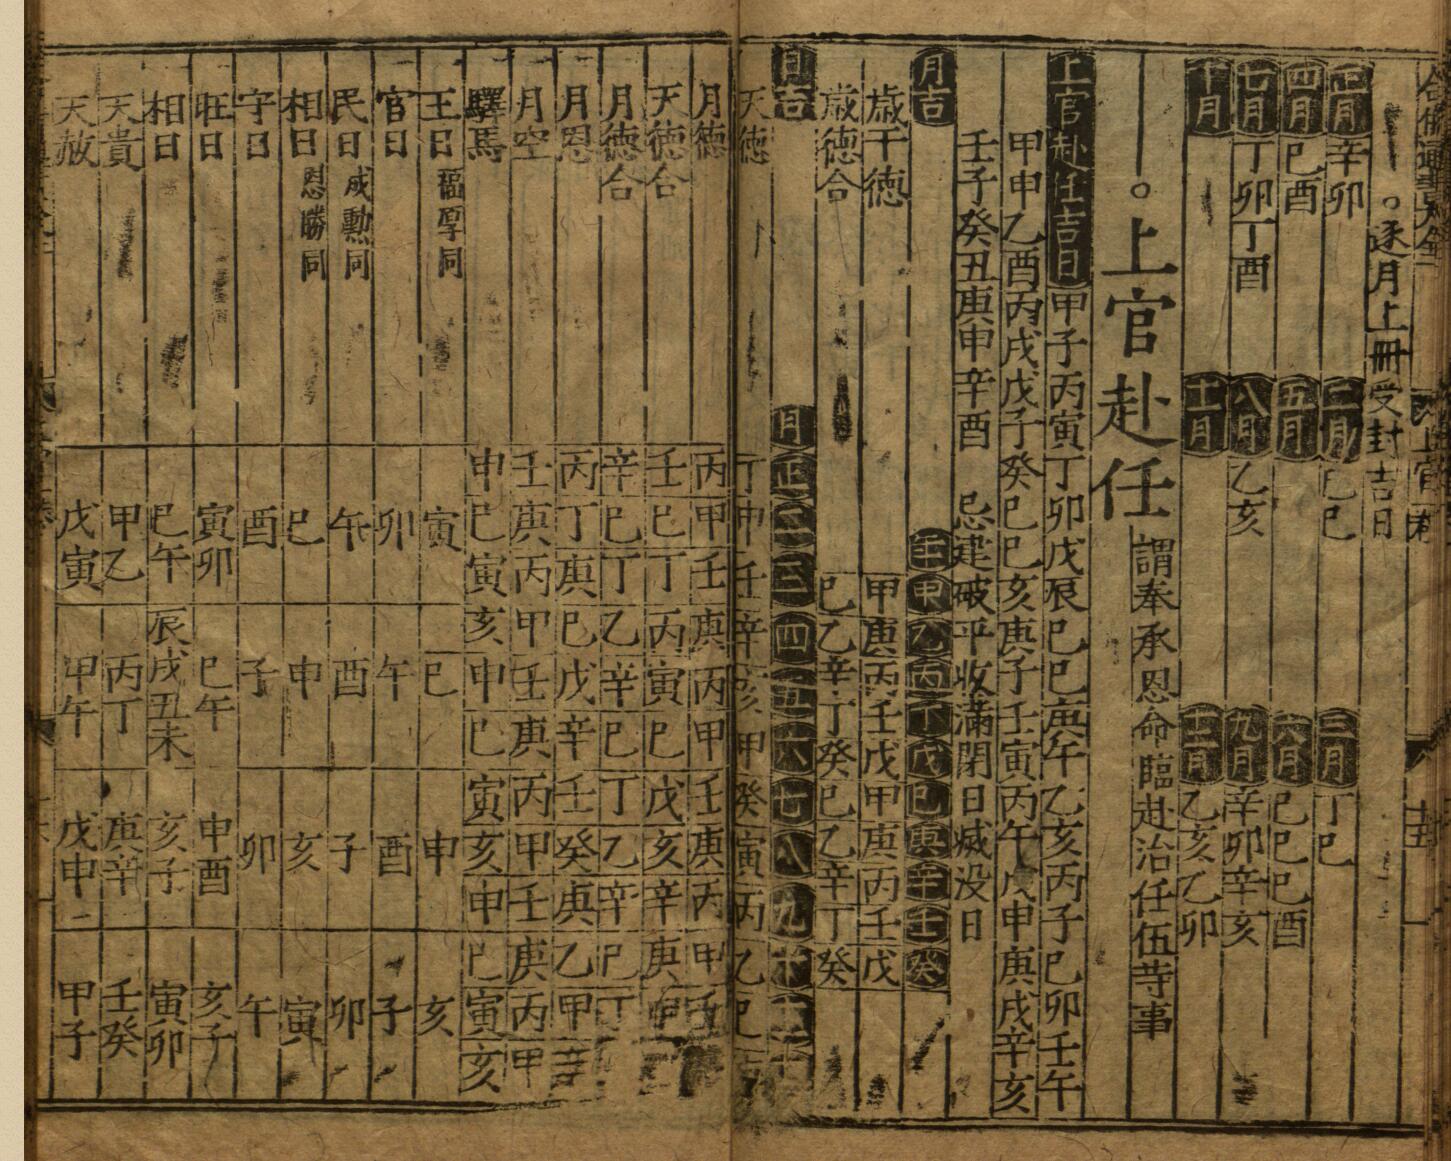 。逐月上冊受封吉日
正月 辛卯 二月 己巳 三月 丁巳
四月 己酉 五月 六月 己巳己酉
七月 丁卯丁酉 八月 乙亥 九月 辛卯辛亥
十月 十一月 十二月 乙亥乙卯
。上官赴任 謂奉承恩命臨赴治任伍寺事
上官赴任吉日 甲子丙寅丁卯戊辰己巳庚午乙亥丙子己卯壬午
甲申乙酉丙戌戊子癸巳己亥庚子壬寅丙午戊申庚戌辛亥
壬子癸丑庚申辛酉 忌建破平收滿閉日滅没日
月吉 壬甲乙丙丁戊己庚辛壬癸
歲干德 甲庚丙壬戊甲庚丙壬戊
歲德合 己乙辛丁癸己乙辛丁癸
日吉 月正二三四五六七八九十十一十
天德 丁申壬辛亥甲癸寅丙乙巳
月德 丙甲壬庚丙甲壬庚丙甲壬
天德合 壬巳丁丙寅己戊亥辛庚申
月德合 辛己丁乙辛己丁乙辛己丁
月恩 丙丁庚己戊辛壬癸庚乙甲辛
月空 壬庚丙甲壬庚丙甲壬庚丙甲
驛馬 申巳寅亥申巳寅亥申巳寅亥
王日 福厚同 寅 巳 申 亥
官日 卯 午 酉 子
民日 成勳同 午 酉 子 卯
相日 恩勝同 巳 申 亥 寅
守日 酉 子 卯 午
旺日 寅卯 巳午 申酉 亥子
相日 巳午 辰戌丑未 亥子 寅卯
天貴 甲乙 丙丁 庚辛 壬癸
天赦 戊寅 甲午 戊申 甲子